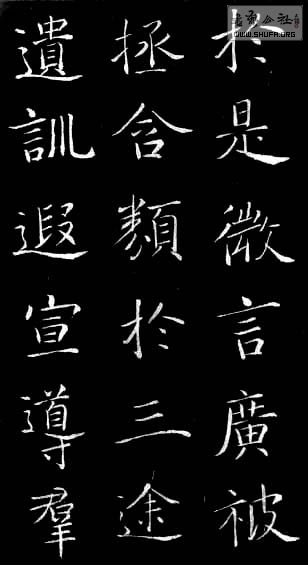 於是微言廣被
拯含類於三途
遺訓遐宣導羣
WWW.SHUFA.ORG